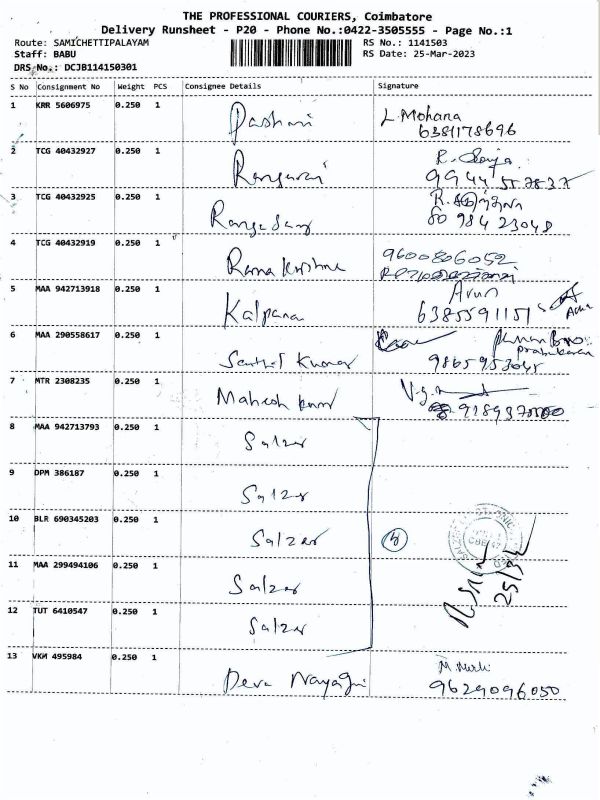 THE PROFESSIONAL COURIERS, Coimbatore
Delivery Runsheet - P20 - Phone No.:0422-3505555 - Page No.:1
Route: SAMICHETTIPALAYAM RS No.: 1141503
Staff: BABU RS Date: 25-Mar-2023
DRS No.: DCJB114150301
S No Consignment No Weight PCS Consignee Details Signature
1 KRR 5606975 0.250 1 L. Mohana
6381178696
2 TCG 40432927 0.250 1
3 TCG 40432925 0.250 1
4 TCG 40432919 0.250 1 Rama Krishna 9600806052
5 MAA 942713918 0.250 1 Kalpana Arun
6385591151
6 MAA 290558617 0.250 1 Senthil Kumar
7 MTR 2308235 0.250 1 Mahesh
8 MAA 942713793 0.250 1 Salzer
9 DPM 386187 0.250 1 Salzer
10 BLR 690345203 0.250 1 Salzer
11 MAA 299494106 0.250 1 Salzer
12 TUT 6410547 0.250 1 Salzer
13 VKM 495984 0.250 1 Deva Nayagi
9629096050